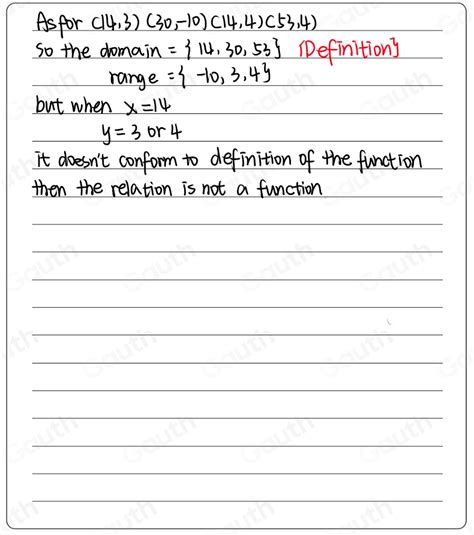 As for (14,3) (30,-10) (14,4) (53,4)
So the domain = { 14, 30, 53 } {Definition}
range = { -10, 3, 4 }
but when x=14
y = 3 or 4
it doesn't conform to definition of the function
then the relation is not a function
Gauth